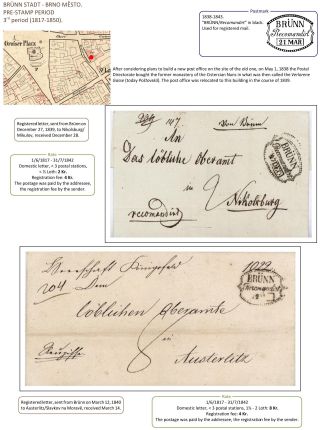 BRÜNN STADT - BRNO MĚSTO.
PRE-STAMP PERIOD
3rd period (1817-1850).
Postmark
1838-1843
"BRÜNN/Recomandirt" in black.
Used for registered mail.
BRÜNN
Recomandirt
21 MAR
After considering plans to build a new post office on the site of the old one, on May 1, 1838 the Postal
Directorate bought the former monastery of the Cistercian Nuns in what was then called the Verlorene
Gasse (today Poštovská). The post office was relocated to this building in the course of 1839.
Registered letter, sent from Brünn on
December 27, 1839, to Nikolsburg/
Mikulov, received December 28.
Rate
1/6/1817 - 31/7/1842
Domestic letter, < 3 postal stations,
< ½ Loth: 2 Kr.
Registration fee: 4 Kr.
The postage was paid by the addressee,
the registration fee by the sender.
147
Von Brünn
An
Das löbliche Oberamt
in
2
Nikolsburg
recomandirt
BRÜNN
204 Dem
löblichen Oberamte
8 in
Austerlitz
BRÜNN
Recomandirt
Registered letter, sent from Brünn on March 12, 1840
to Austerlitz/Slavkov na Moravě, received March 14.
Rate
1/6/1817 - 31/7/1842
Domestic letter, < 3 postal stations, 1½ - 2 Loth: 8 Kr.
Registration fee: 4 Kr.
The postage was paid by the addressee, the registration fee by the sender.